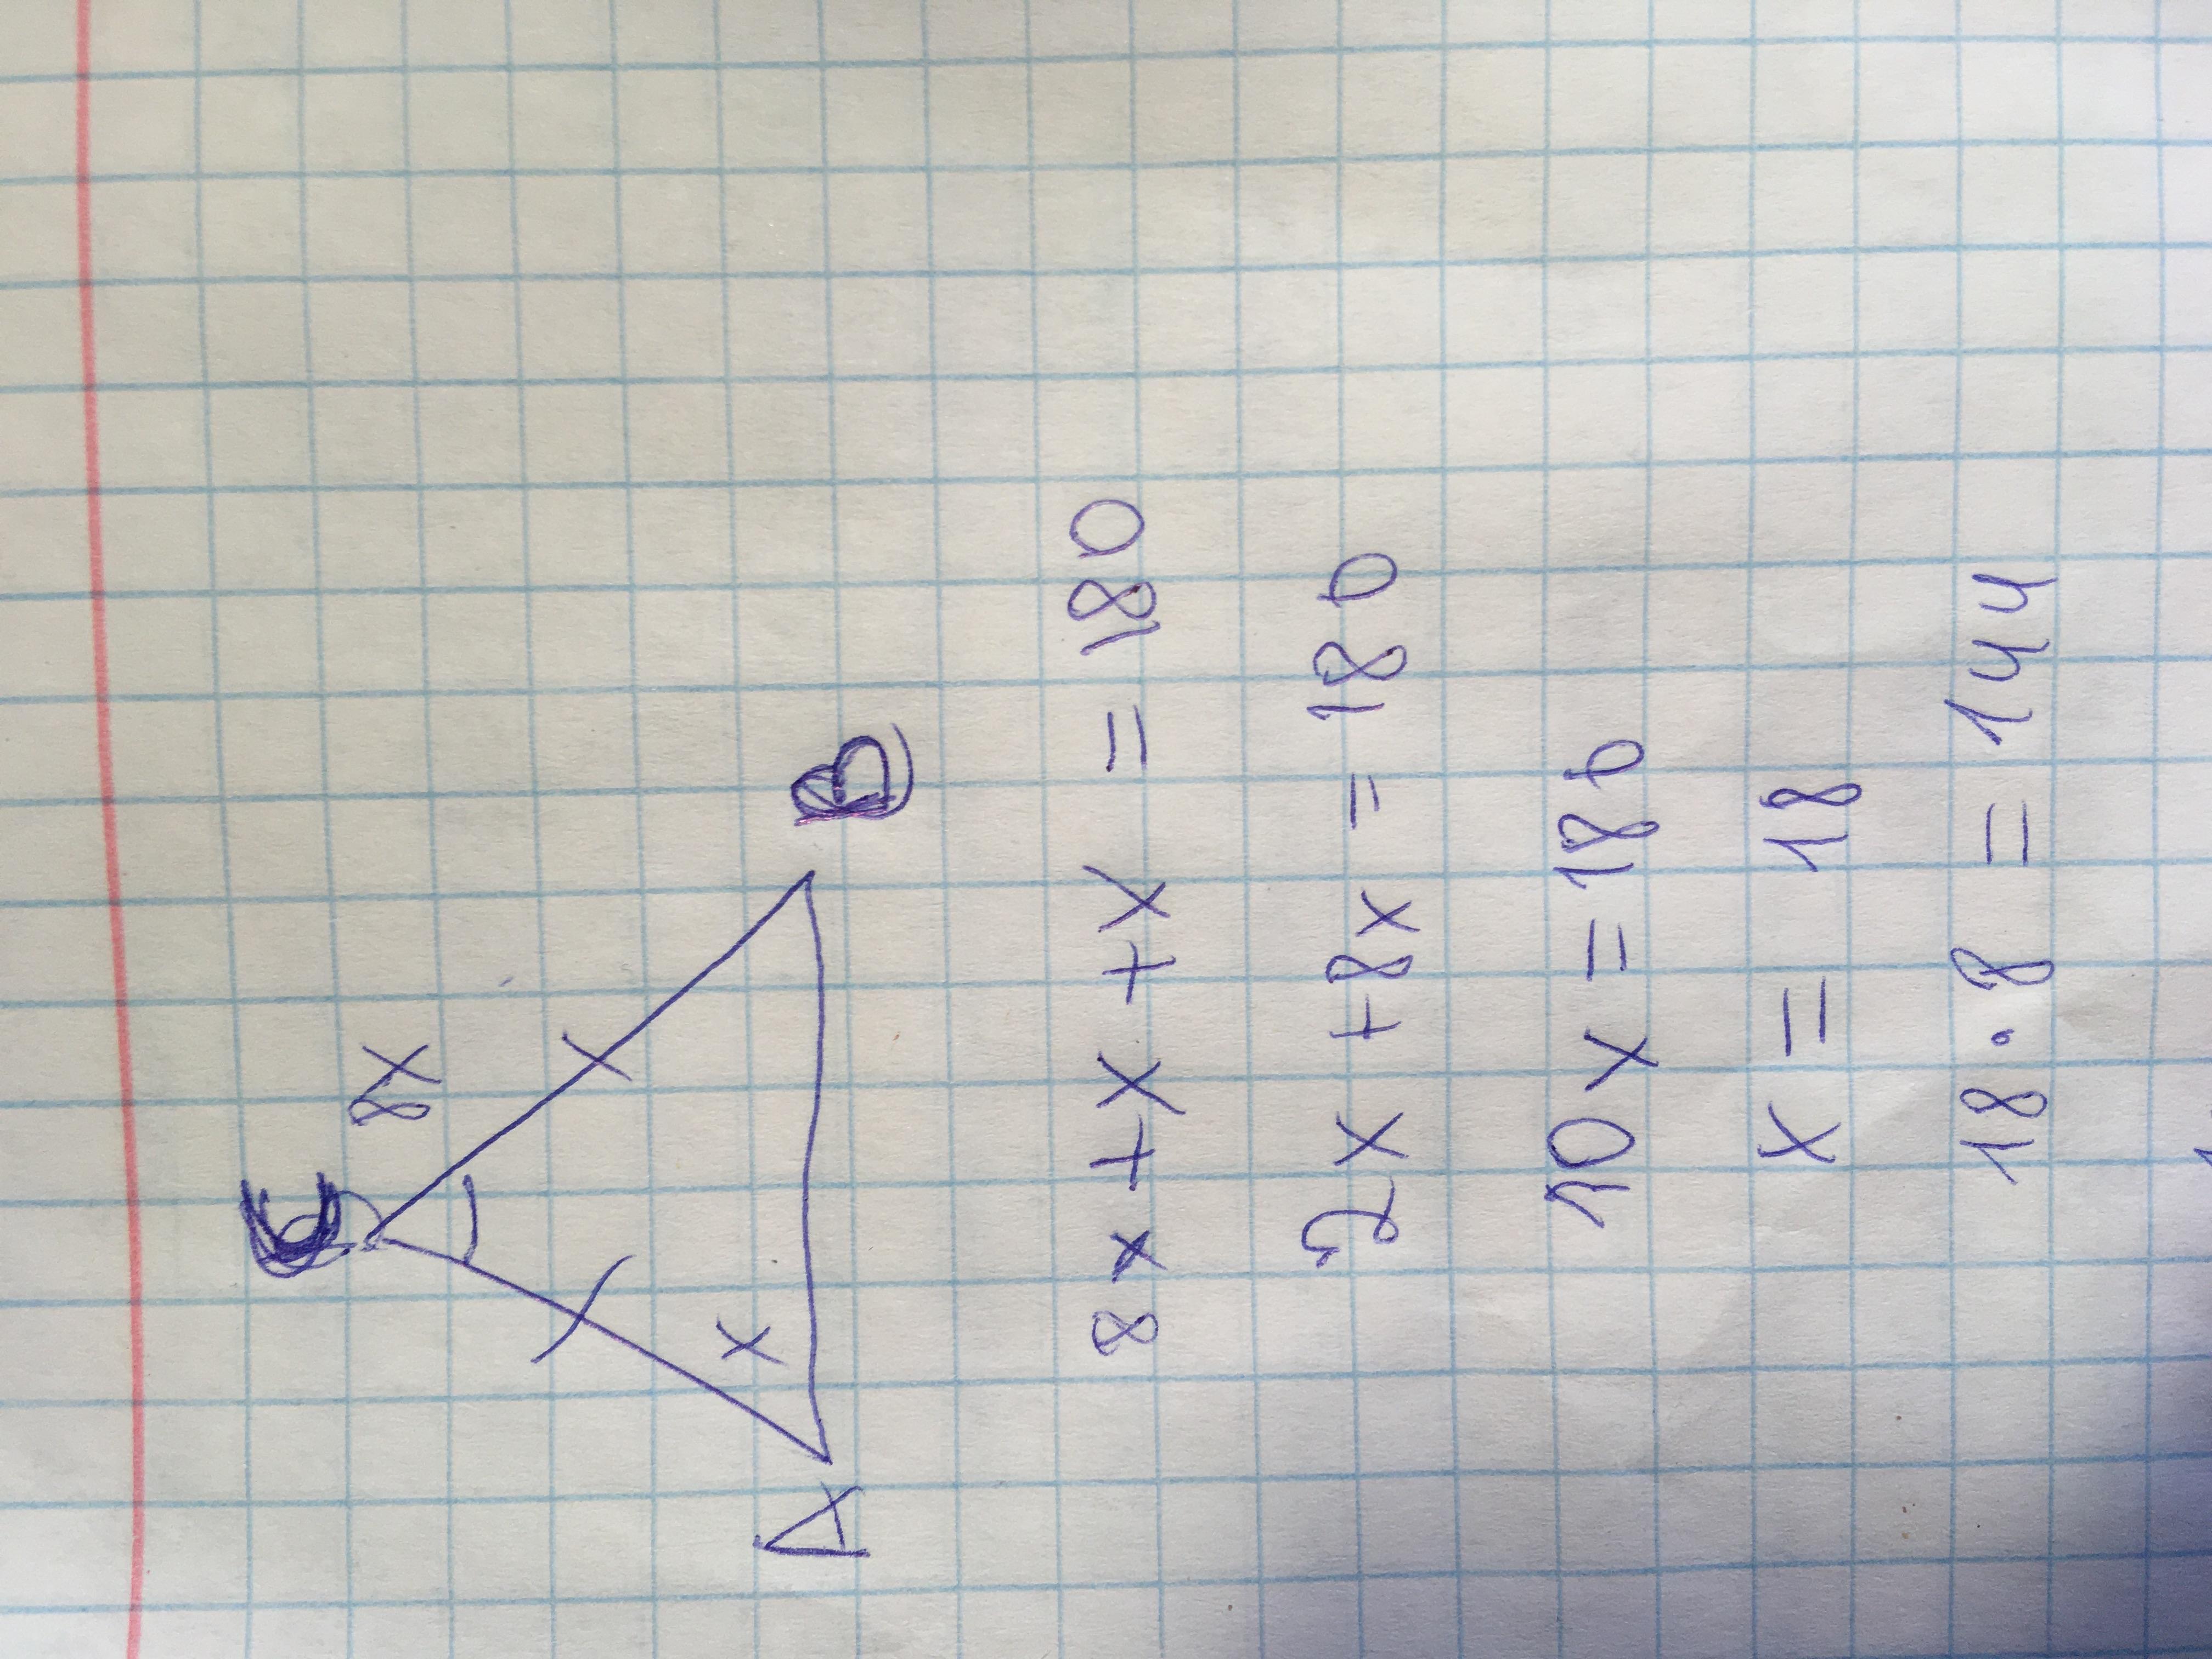 C
8x
x
A B
8x + x + x = 180
2x + 8x = 180
10x = 180
x = 18
18 · 8 = 144